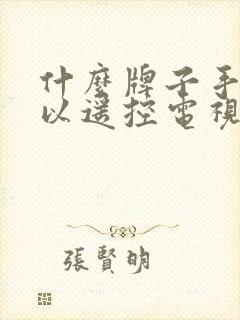 什麼牌子手
以遥控電視
張賢明